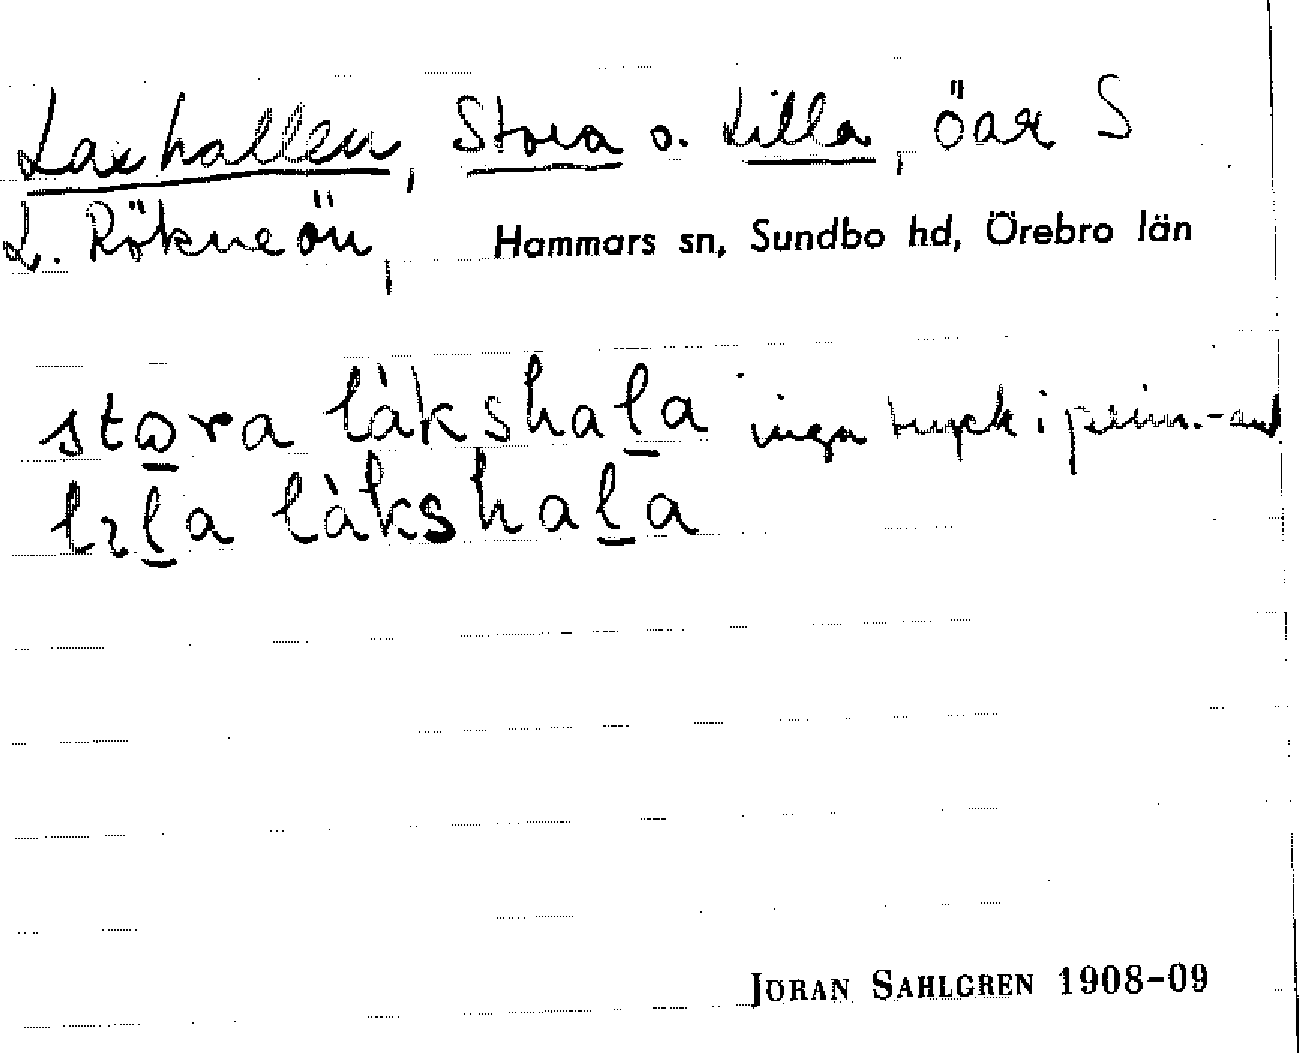 Laxhallen, Stora o. Lilla, öar S
L. Rökneön, Hammars sn, Sundbo hd, Örebro län
stora làkshala inga tryck i prim.-
lıla làkshala
JÖRAN SAHLGREN 1908-09